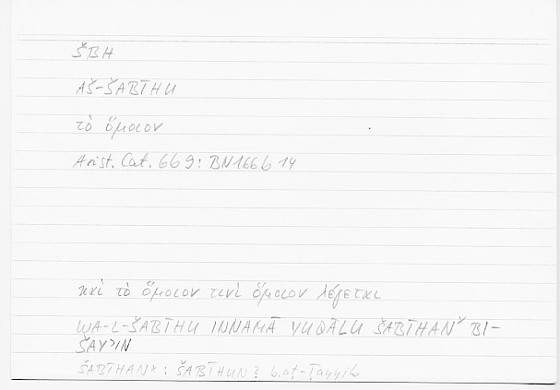 ŠBH
AŠ-ŠABĪHU
τὸ ὅμοιον
Arist. Cat. 6b9: BN166b 14
καὶ τὸ ὅμοιον τινὶ ὅμοιον λέγεται
WA-L-ŠABĪHU INNAMĀ YUQĀLU ŠABĪHANˣ BI-
ŠAYʾIN
ŠABĪHANˣ: ŠABĪHUN? b.aṭ-Ṭayyib